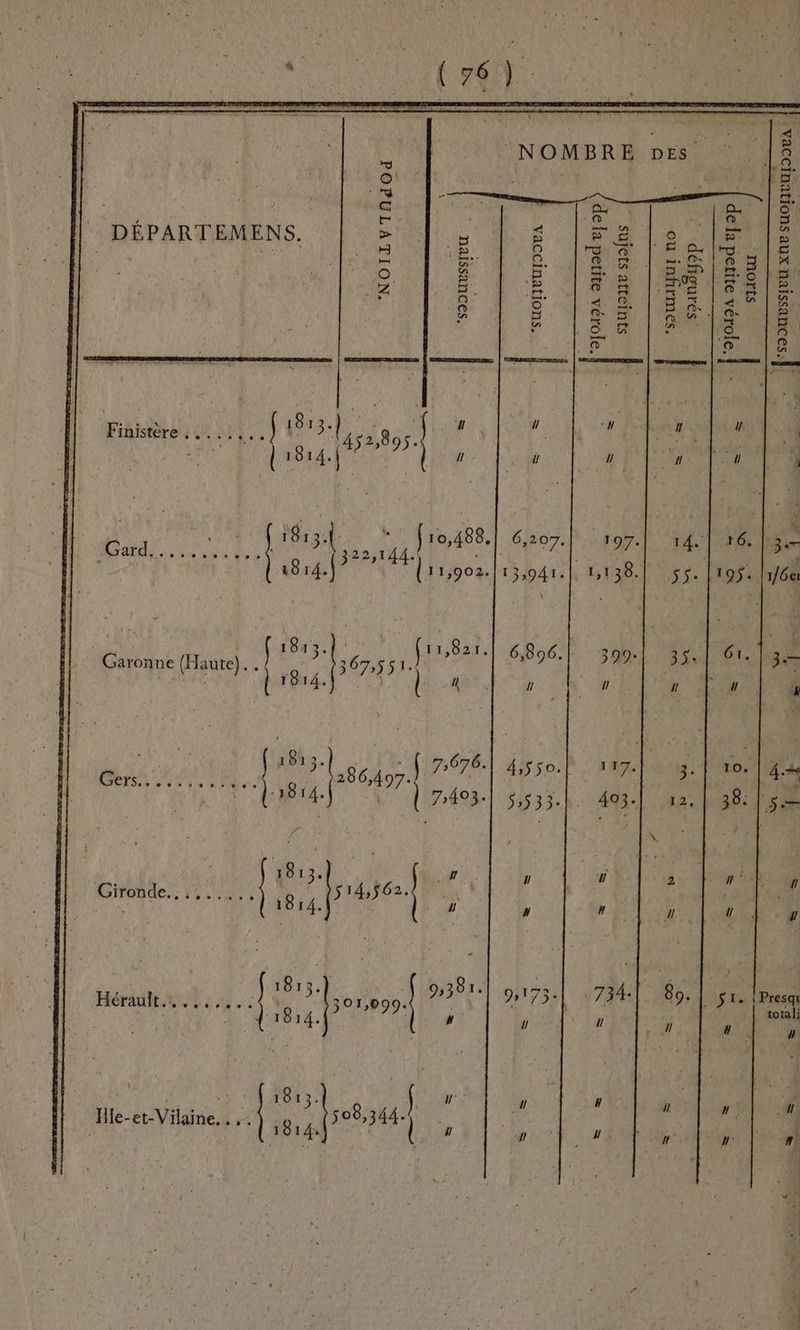 ( 76 )
NOMBRE DES
DÉPARTEMENS.
POPULATION.
naissances.
vaccinations.
sujets atteints
de la petite vérole.
défigurés
ou infirmes.
morts
de la petite vérole.
vaccinations aux naissances.
Finistère ........ { 1813. } 452,895. { " " " " "
1814. " " " " "
Gard........... { 1813. } 322,144. { 10,488. 6,207. 197. 14. 16. 3.—
1814. 11,902. 13,941. 1,138. 55. 195. 1/6e
Garonne (Haute). . { 1813. } 367,551. { 11,821. 6,896. 399. 35. 61. 3.—
1814. " " " " " "
Gers........... { 1813. } 286,497. { 7,676. 4,550. 117. 3. 10. 4.—
1814. 7,403. 5,533. 403. 12. 38. 5.—
Gironde........ { 1813. } 514,562. { " " " 2 " "
1814. " " " " " "
Hérault......... { 1813. } 301,099. { 9,381. 9,173. 734. 89. 51. Presqu
total
1814. " " " " " "
Ille-et-Vilaine.... { 1813. } 508,344. { " " " " " "
1814. " " " " " "